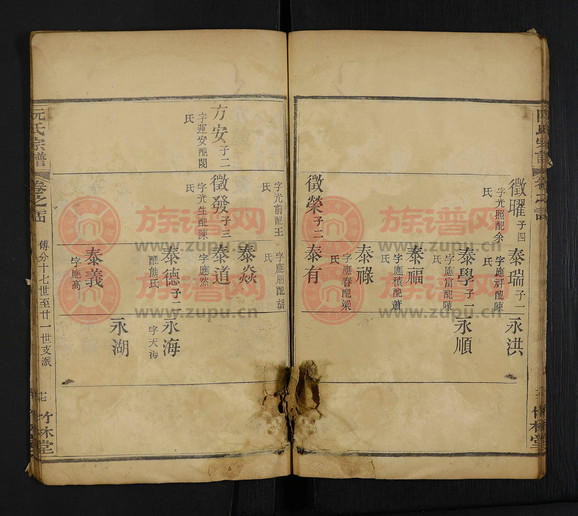 徵曜 子四
字光照配余
氏
泰瑞 子一
字應祥配陳
氏
永洪
泰學 子一
字應富配陳
氏
永順
泰福
字應積配蕭
氏
泰祿
字應春配梁
氏
徵榮 子二
字光前配王
氏
泰有
字應朋配胡
氏
方安 子二
字運安配閔
氏
徵發 子三
字光生配陳
氏
泰焱
泰道
字應然
泰德 子二
配熊氏
永海
字天海
泰義
字應高
永湖
阮氏宗譜
卷之
傅分十七世至廿一世支派
竹林堂
竹林堂
族谱网
www.zupu.cn
族谱网
www.zupu.cn